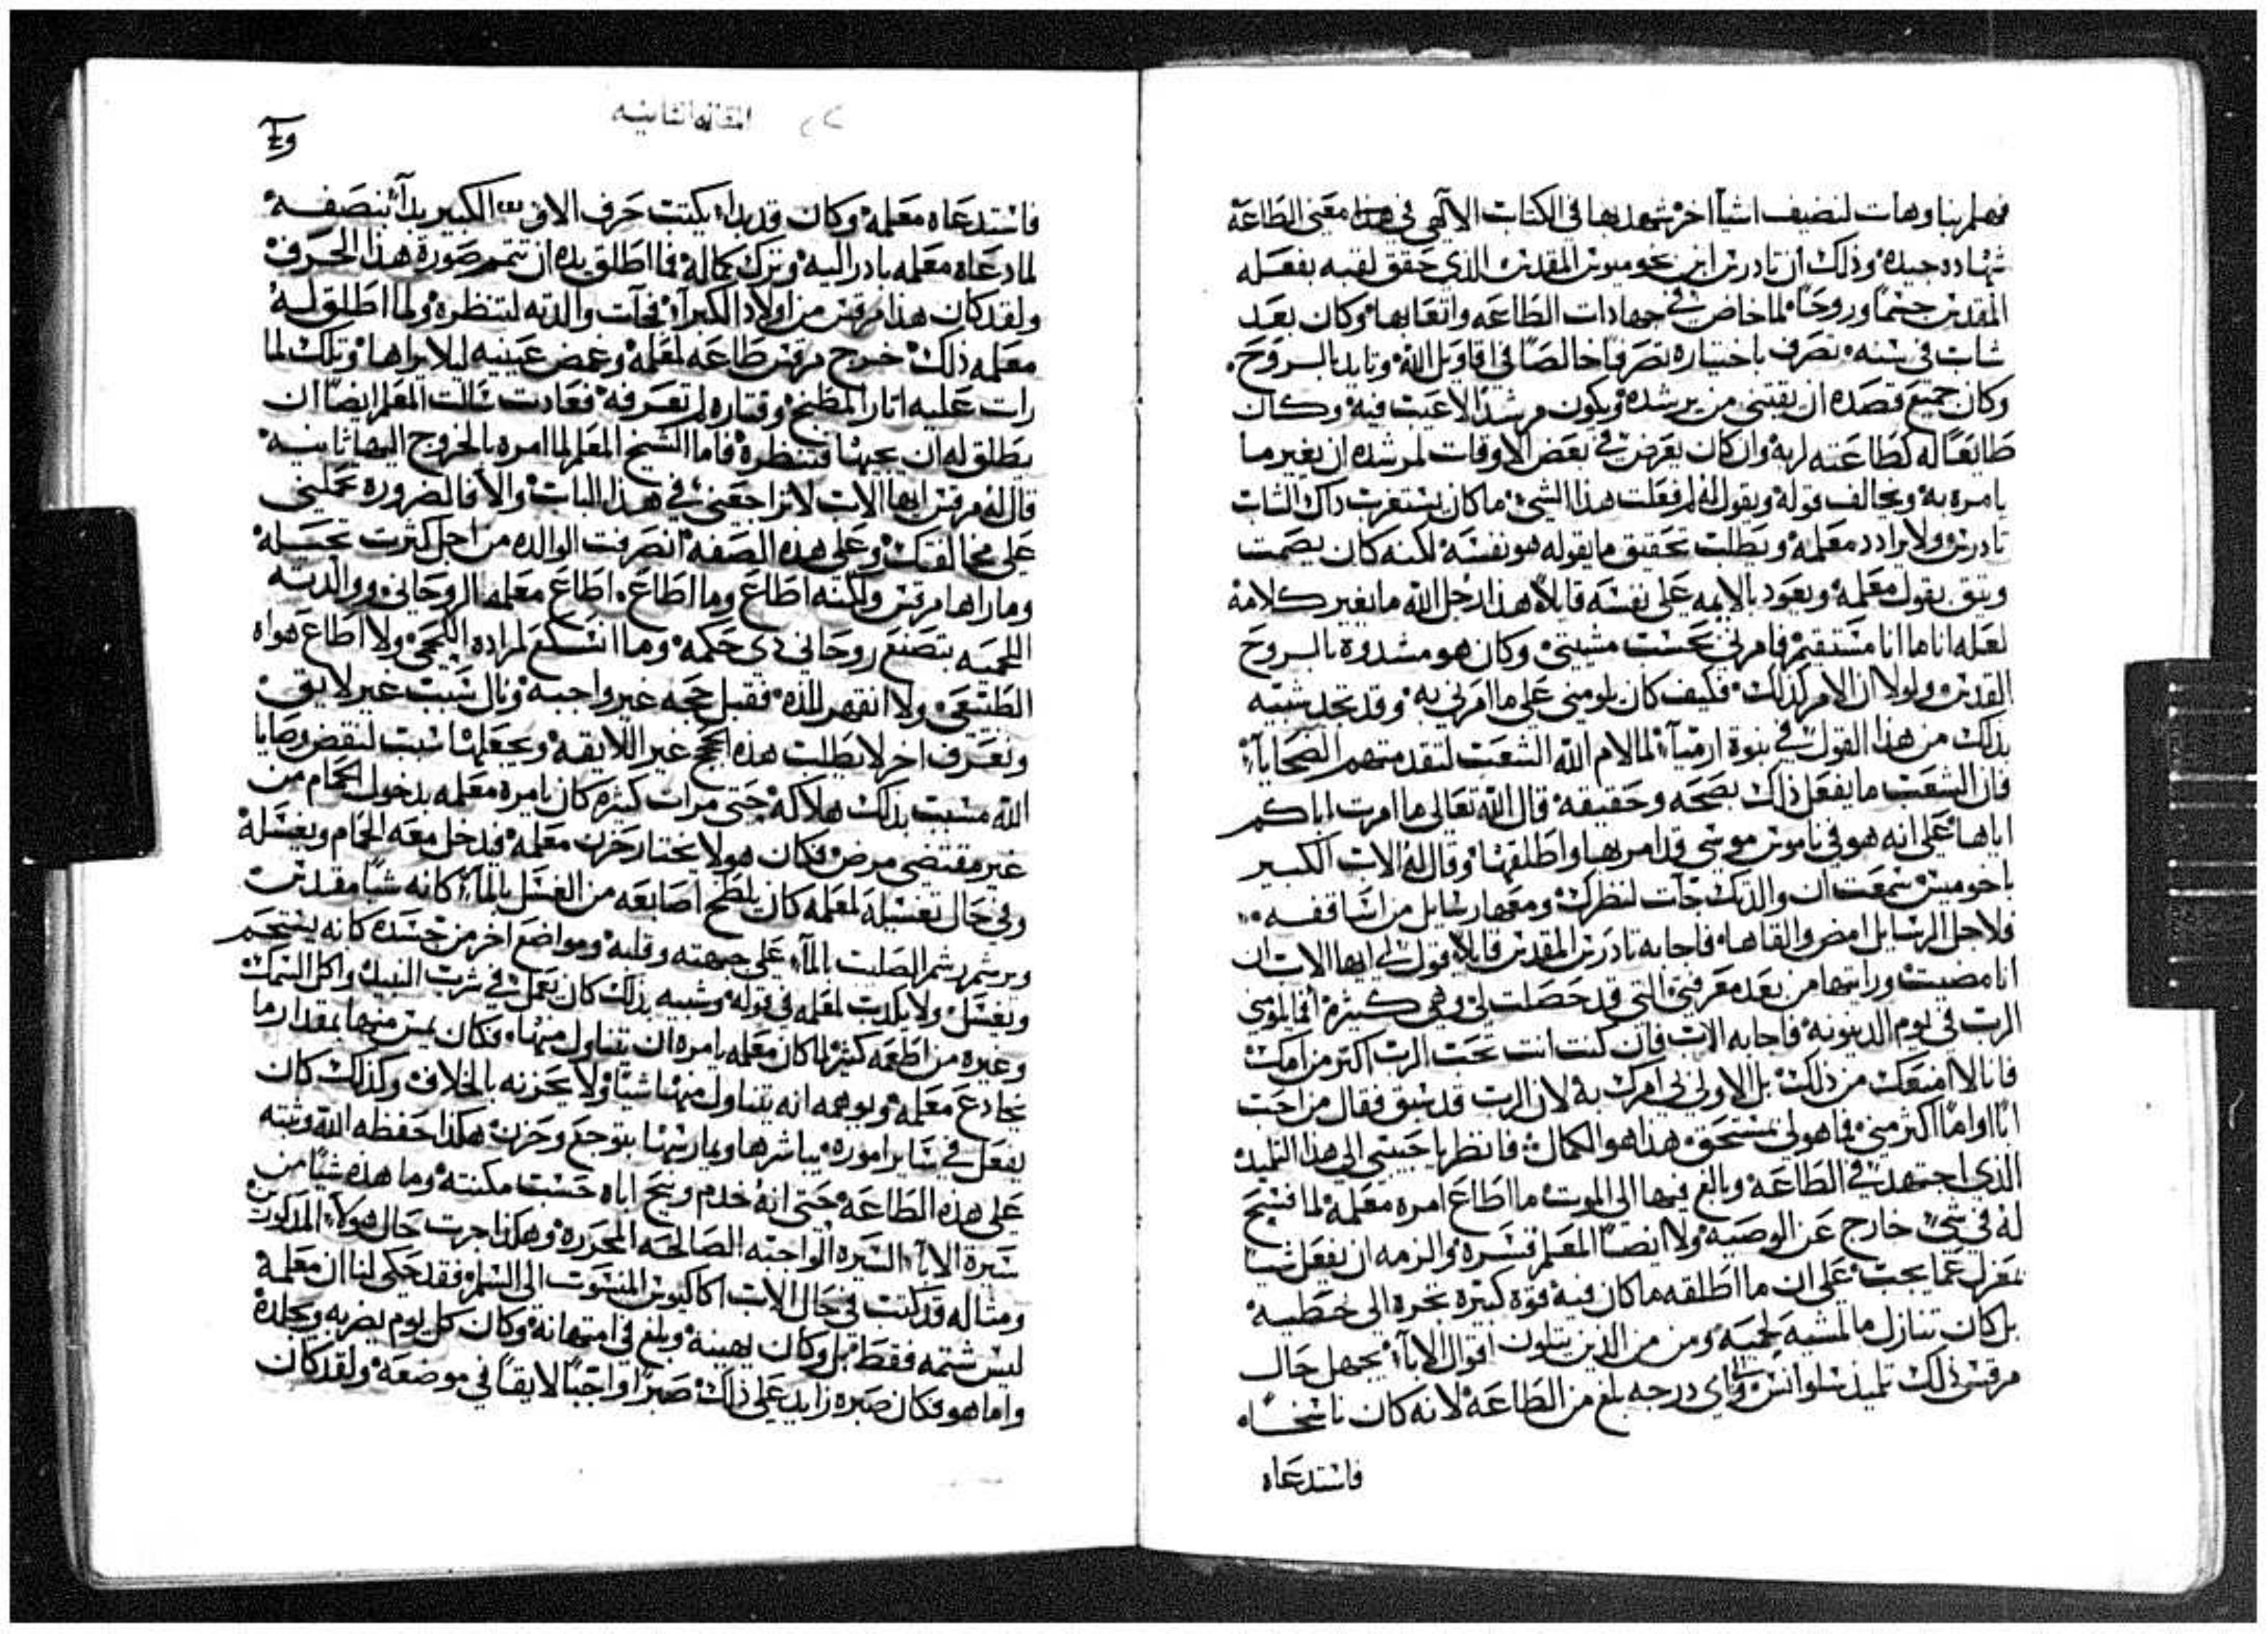 فهلم بنا وهات لنضيف اشيآ اخر شهد بها في الكتاب الالآهي في هذا معني الطاعه
شهاده جيده وذلك ان تادرس ابن بخوميوس المقدس الذي حقق لقبه بفعله
المقدس جسمًا وروحًا لما خاض في جهادات الطاعه واتعابها وكان بعد
شاب في سنه تصرف باختياره تصرفًا خالصًا في اقاويل الله وتايد بالروح
وكان جميع قصده ان يقتني من يرشده ويكون مرشدًا لاعيب فيه وكان
طايعًا له كطاعته لربه وان كان يعرض في بعض الاوقات لمرشده ان يغير ما
يامره به ويخالف قوله ويقول له لم فعلت هذا الشي ما كان يستغرب داك الشاب
تادرس ولا يرادد معلمه ويطلب تحقيق ما يقوله هو نفسه لكنه كان يصمت
ويثق بقول معلمه ويعود بالايمه علي نفسه قايلاً هذا رجل الله ما يغير كلامه
لعله انا ما انا مستقيم فامرني بحسب مشيتي وكان هو مشدوه بالروح
القدس ولولا ان الامر كذلك فكيف كان يلومني علي ما امرني به وقد تجد شبيه
بذلك من هذا القول في نبوة ارميآ لما لام الله الشعب لتقدمتهم الضحايآ
فان الشعب ما يفعل ذلك بصحه وحقيقه قال الله تعالي ما امرت اباكم
اياها علي انه هو في ناموس موسي قد امر بها واطلقها وقال له الاب الكبير
باخوميس سمعت ان والدتك جآت لتنظرك ومعها رسايل من اساقفه
فلاجل الرسايل امض والقاها فاجابه تادرس المقدس قايلاً قول لي ايها الاب ان
انا مضيت ورايتها من بعد معرفتي التي قد حصلت لي وهي كثيرة افما يلومني
الرب في يوم الدينونه فاجابه الاب فان كنت انت تحب الرب اكتر من امك
فانا لا امنعك من ذلك بل الاولي لي امرك به لان الرب قد سبق فقال من احب
ابًا او امًا اكثر مني فما هو لي بمستحق هذا هو الكمال فانظر يا حبيبي الي هذا التلميذ
الذي اجتهد في الطاعه وبالغ فيها الي الموت ما اطاع امره معلمه لما فسح
له في شي خارج عن الوصيه ولا ايضًا المعلم قسره والزمه ان يفعل شيًا
بمعزل عما يجب علي ان ما اطلقه ما كان فيه قوة كبيره تجره الي خطيه
بل كان تنازل ما لمشيه لحميه ومن من الذين يتلون اقوال الابآ يجهل حال
مرقس ذلك تلميذ سلوانس والي اي درجه بلغ من الطاعه لانه كان ناسخًا
فاستدعاه
المقاله الثانيه
فاستدعاه معلمه وكان قد بدا يكتب حرف الاو الكبير بدآ بنصفه
لما دعاه معلمه بادر اليه وترك كماله فما اطلق يده ان تتمم صورة هذا الحرف
ولقد كان هذا مرقس من اولاد الكبرآ فجآت والدته لتنظره ولما اطلق له
معلمه ذلك خرج مرقس طاعه لمعلمه وغمض عينيه ليلا يراها وتلك لما
رات عليه اتار المطبخ وقتاره لم تعرفه فعادت سالت المعلم ايضًا ان
يطلق له ان يجيها فتنظره فاما الشيخ المعلم لما امره بالخروج اليها ثانيه
قال له مرقس ايها الاب لا تراجعني في هذا الباب والا فالضروره تحملني
علي مخالفتك وعلي هذه الصفه انصرفت الوالده من اجل كثرت تحيله
وما راها مرقس ولكنه اطاع وما اطاع اطاع معلمه الروحاني ووالدته
اللحميه بتصنع روحاني ذي حكمه وما انتكع لمراده اللحمي ولا اطاع هواه
الطبيعي ولا انقهر للذه فقبل حجه غير واجبه وقال سبب غير لايق
وتعرف اخر لا يطلب هذه الحجج غير اللايقه ويجعلها سبب لنقض وصايا
الله مسبب بذلك هلاكه حتي مرات كثيره كان يامره معلمه بدخول الحمام من
غير مقتضي مرض فكان هو لا يختار حزن معلمه فيدخل معه الحمام ويغسله
وفي حال تغسيله لمعلمه كان يلطخ اصابعه من الغسل بالمآ كانه شيًا مقدس
ويرشم رشم الصليب بالمآ علي جبهته وقلبه ومواضع اخر من جسده كانه يستحم
ويغسل ولا يكدب لمعلمه في قوله وشبه بذلك كان يعمل في شرب النبيد واكل السمك
وغيره من اطعمه كثير لما كان معلمه يامره ان يتناول منها فكان يمس منها بمقدار ما
يخادع معلمه ويوهمه انه يتناول منها شيًا ولا يحزنه بالخلاف وكذلك كان
يفعل في ساير اموره يباشرها ويمارسها بتوجع وحزن هكذا حفظه الله وثبته
علي هذه الطاعه حتي انه خدم ونيح اباه حسب مكنته وما هذه شيًا من
سيرة الابآ السيره الواجبه الصالحه المحرره وهكذا جرت حال هولآ المدكورين
ومثاله قد كتب في حال الاب اكاكيوس المنسوب الي السلم فقد حكي لنا ان معلمه
ليس شتمه فقط بل وكان يهينه وبلغ في امتهانه وكان كل يوم يضربه ويجلده
واما هو فكان صبره زايد علي ذلك صبرًا واجبًا لايقًا في موضعه ولقد كان